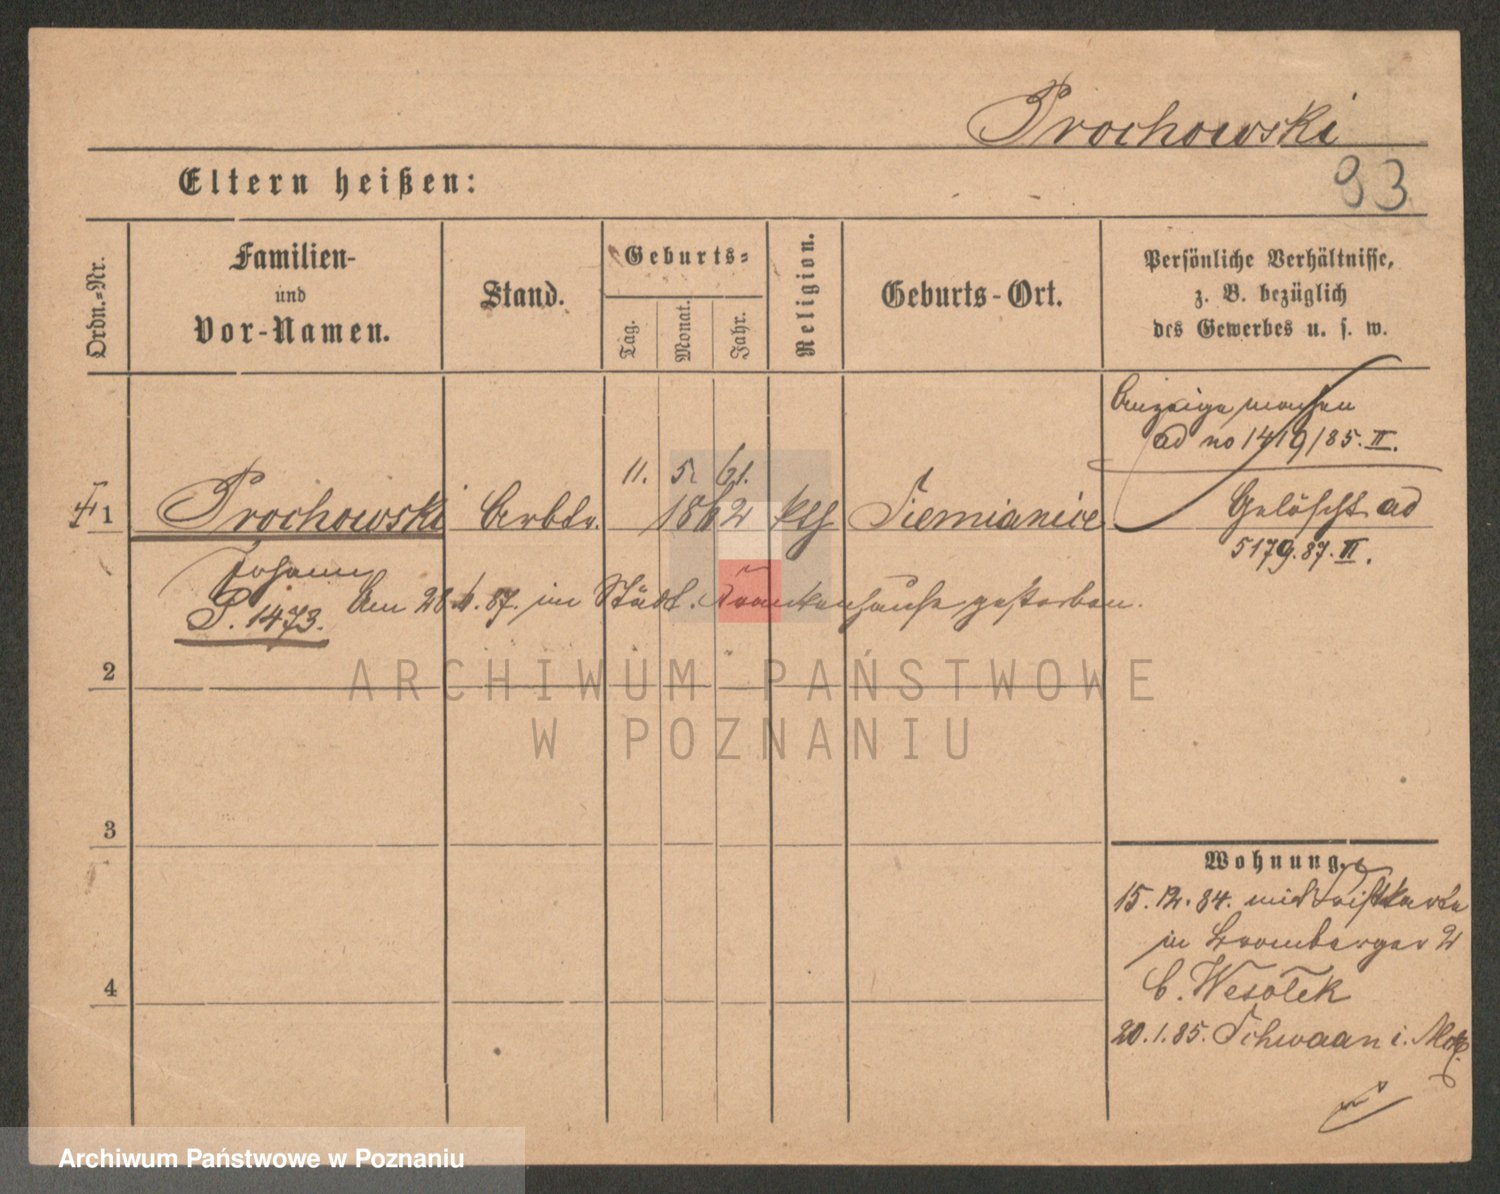 Prochowski
93
Eltern heißen:
Ordn.-Nr.
Familien-
und
Vor-Namen.
Stand.
Geburts-
Tag.
Monat.
Jahr.
Religion.
Geburts-Ort.
Persönliche Verhältnisse,
z. B. bezüglich
des Gewerbes u. s. w.
Anzeige machen
ad no 1419/85. II.
11. 5. 61.
1 Prochowski Arbtr. 1862 kth Siemianice
Gelöscht ad
5179.87. II.
Johann
P. 1473.
Am 28. 6. 87. im Städt. Krankenhause gestorben.
2
3
4
Wohnung.
15. 12. 84. mit
in Bromberger 2
b. Wesolek
20. 1. 85. Schwaan i. Mckl.
ARCHIWUM PAŃSTWOWE
W POZNANIU
Archiwum Państwowe w Poznaniu